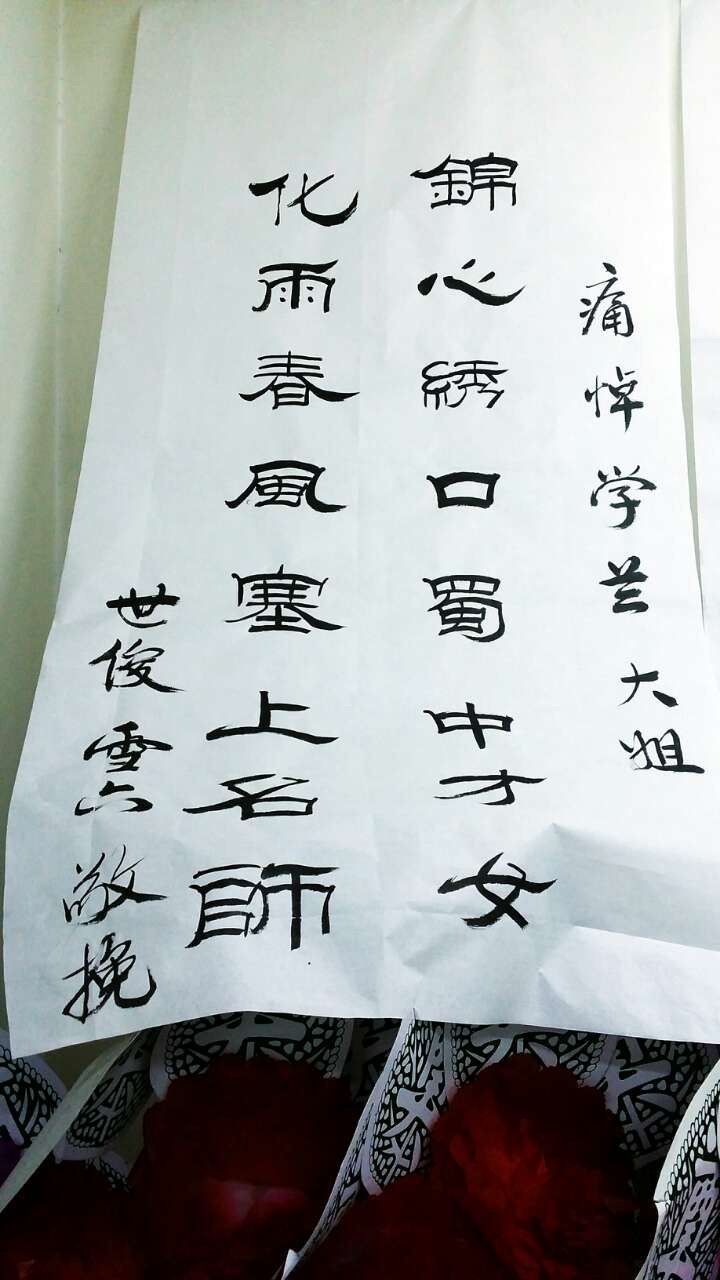 痛悼学兰大姐
錦心綉口蜀中才女
化雨春風塞上名師
世俊雪六敬挽